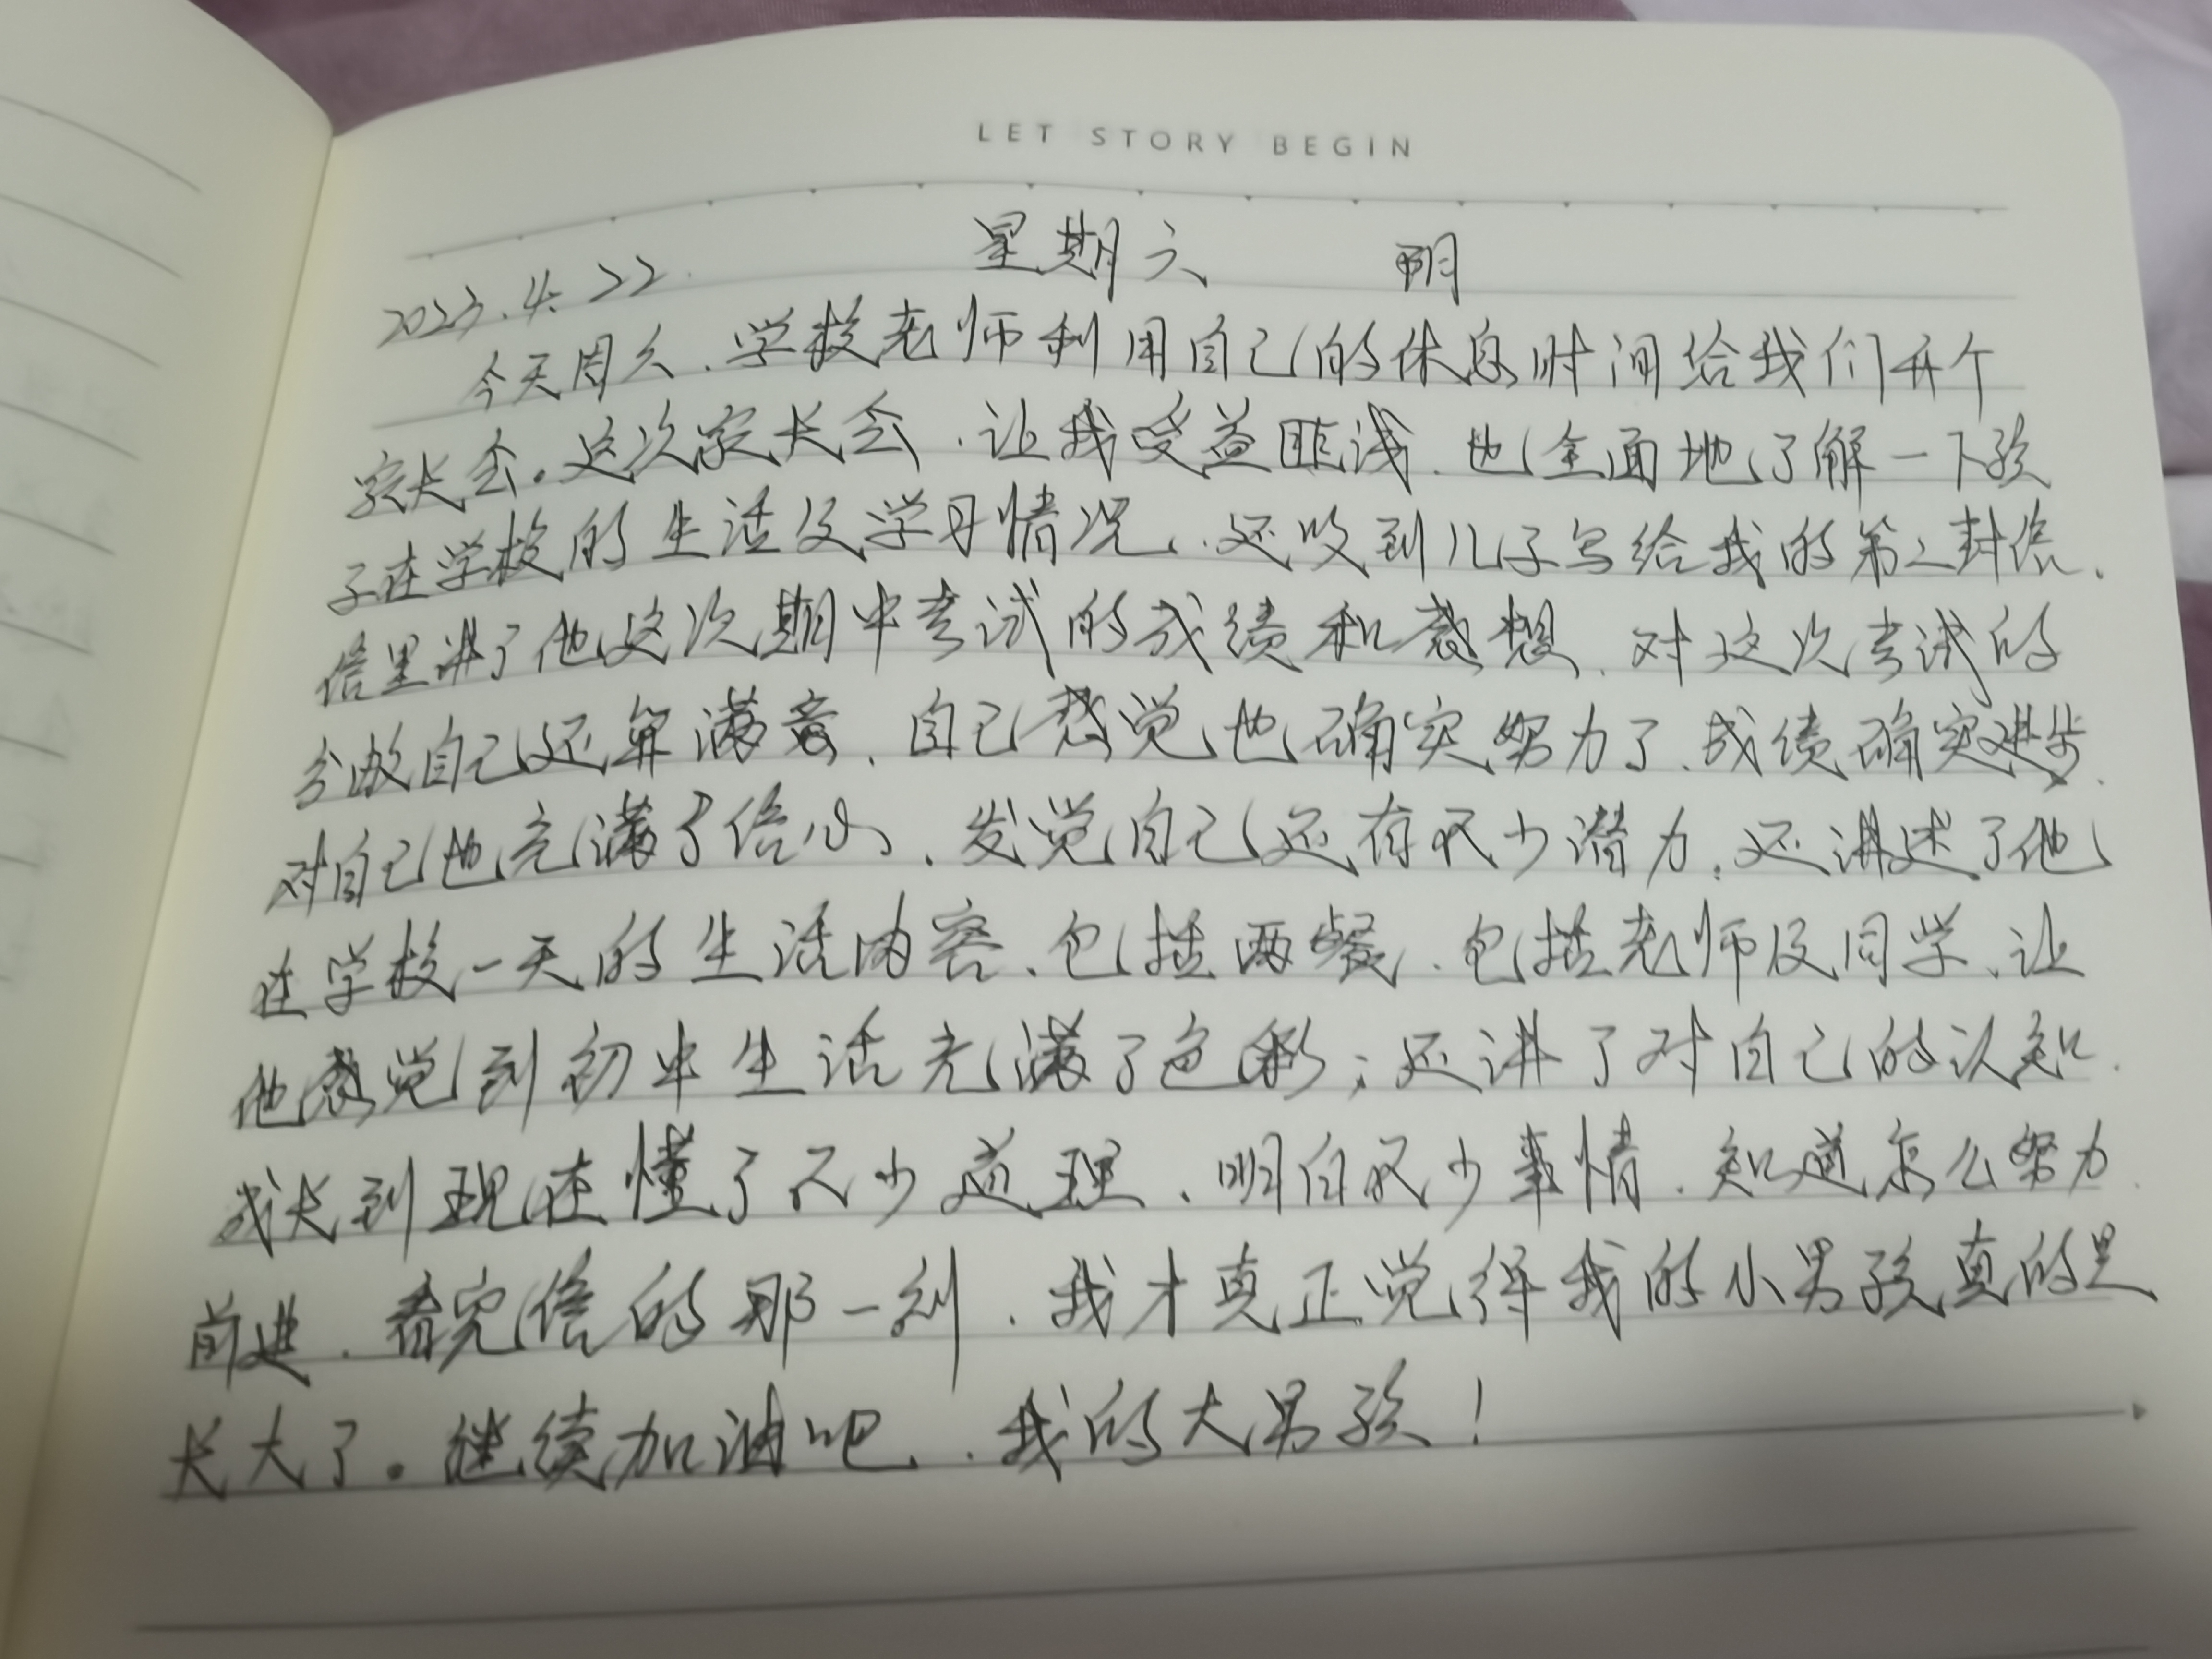 LET STORY BEGIN
2023.4.22. 星期六 阴
今天周六、学校老师利用自己的休息时间给我们开个
家长会。这次家长会、让我受益匪浅、也全面地了解一下孩
子在学校的生活及学习情况、还收到儿子写给我的第二封信、
信里讲了他这次期中考试的成绩和感想、对这次考试的
分数自己还算满意、自己感觉也确实努力了、成绩确实进步、
对自己也充满了信心、发觉自己还有不少潜力、还讲述了他
在学校一天的生活内容、包括两餐、包括老师及同学、让
他感觉到初中生活充满了色彩；还讲了对自己的认知、
成长到现在懂了不少道理、明白不少事情、知道怎么努力
前进、看完信的那一刻、我才真正觉得我的小男孩真的是
长大了。继续加油吧、我的大男孩！